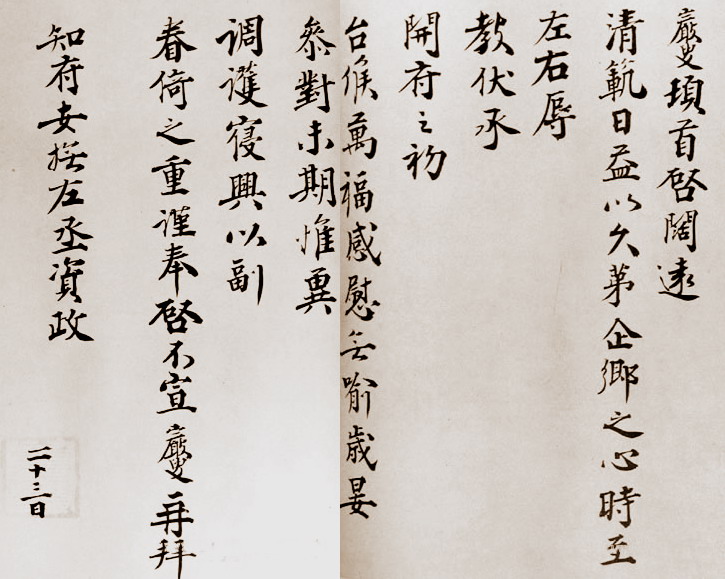 夔頓首啓闊遠
清範日益以久第企鄉之心時至
左右辱
教伏承
開府之初
台候萬福感慰無喻歲晏
參對未期惟冀
调護寢興以副
眷倚之重謹奉啓不宣夔再拜
知府安撫左丞資政
二十三日